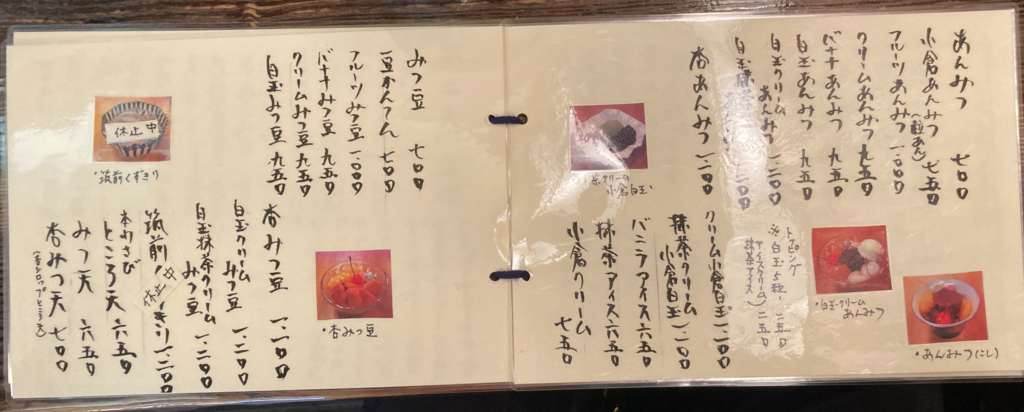 あんみつ 七〇〇
小倉あんみつ 七五〇
(粒あん)
フルーツあんみつ 一、〇〇〇
クリームあんみつ 九五〇
バナナあんみつ 九五〇
白玉あんみつ 九五〇
白玉クリーム
あんみつ
白玉抹茶
杏あんみつ 一、二〇〇
トッピング
※白玉5粒 二五〇
アイスクリーム
抹茶アイス) 二五〇
クリーム小倉白玉 一、一〇〇
抹茶クリーム
小倉白玉 一、一〇〇
バニラアイス 六五〇
抹茶アイス 六五〇
小倉クリーム 七五〇
茶クリーム
小倉白玉
・白玉クリーム
あんみつ
・あんみつ(こし)
みつ豆 七〇〇
豆かんてん 七〇〇
フルーツみつ豆 一、〇〇〇
バナナみつ豆 九五〇
クリームみつ豆 九五〇
白玉みつ豆 九五〇
杏みつ豆 一、一〇〇
白玉クリーム
みつ豆 一、二〇〇
白玉抹茶クリーム
みつ豆 一、二〇〇
筑前くずきり 一、二〇〇
休止中
本わさび
ところ天 六五〇
みつ天 六五〇
杏みつ天 七〇〇
(杏シロップところ天)
休止中
・筑前くずきり
・杏みつ豆